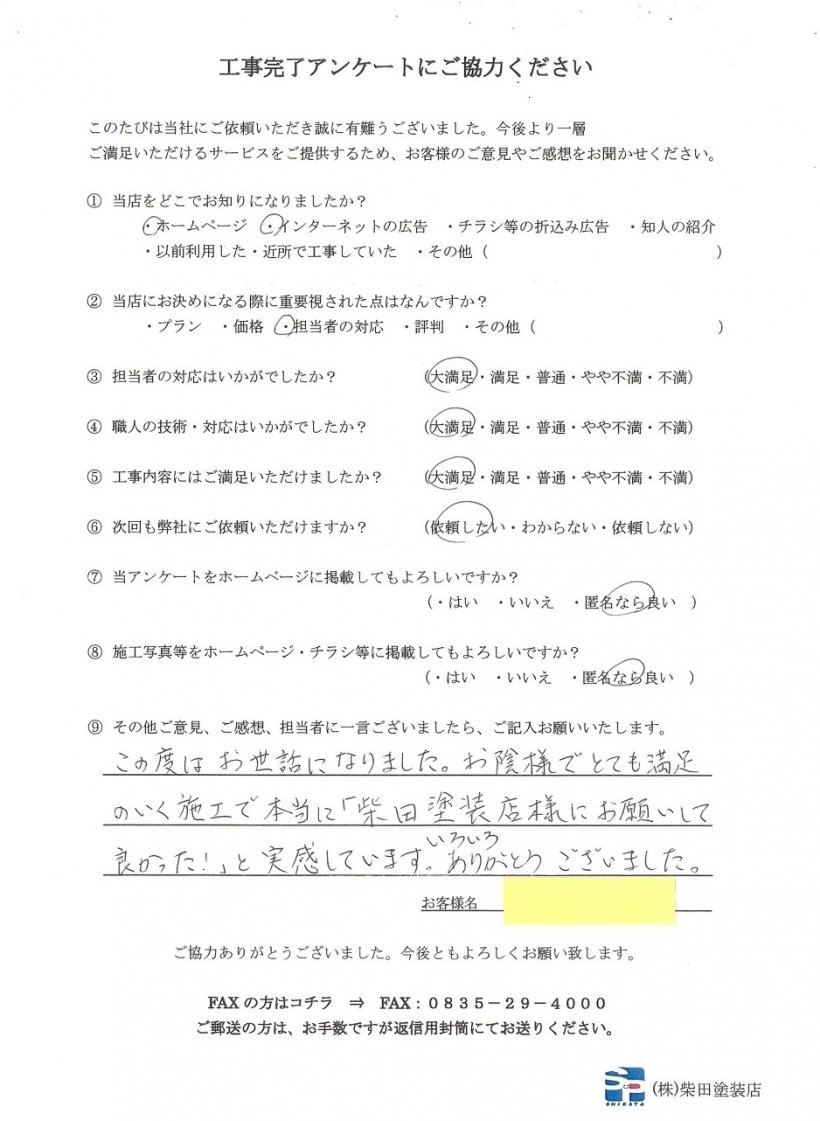 工事完了アンケートにご協力ください
このたびは当社にご依頼いただき誠に有難うございました。今後より一層
ご満足いただけるサービスをご提供するため、お客様のご意見やご感想をお聞かせください。
① 当店をどこでお知りになりましたか？
・ホームページ ・インターネットの広告 ・チラシ等の折込み広告 ・知人の紹介
・以前利用した・近所で工事していた ・その他（ ）
② 当店にお決めになる際に重要視された点はなんですか？
・プラン ・価格 ・担当者の対応 ・評判 ・その他（ ）
③ 担当者の対応はいかがでしたか？ （大満足・満足・普通・やや不満・不満）
④ 職人の技術・対応はいかがでしたか？ （大満足・満足・普通・やや不満・不満）
⑤ 工事内容にはご満足いただけましたか？ （大満足・満足・普通・やや不満・不満）
⑥ 次回も弊社にご依頼いただけますか？ （依頼したい・わからない・依頼しない）
⑦ 当アンケートをホームページに掲載してもよろしいですか？
（・はい ・いいえ ・匿名なら良い ）
⑧ 施工写真等をホームページ・チラシ等に掲載してもよろしいですか？
（・はい ・いいえ ・匿名なら良い ）
⑨ その他ご意見、ご感想、担当者に一言ございましたら、ご記入お願いいたします。
この度はお世話になりました。お陰様でとても満足
のいく施工で本当に「柴田塗装店様にお願いして
良かった！」と実感しています。いろいろありがとうございました。
お客様名
ご協力ありがとうございました。今後ともよろしくお願い致します。
FAXの方はコチラ ⇒ FAX：０８３５－２９－４０００
ご郵送の方は、お手数ですが返信用封筒にてお送りください。
SHIBATA (株)柴田塗装店